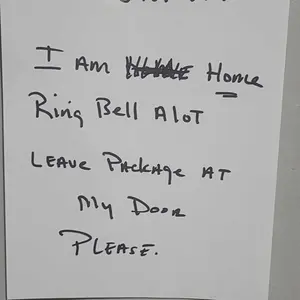 I AM HOME
RING BELL ALOT
LEAVE PACKAGE AT
MY DOOR
PLEASE.